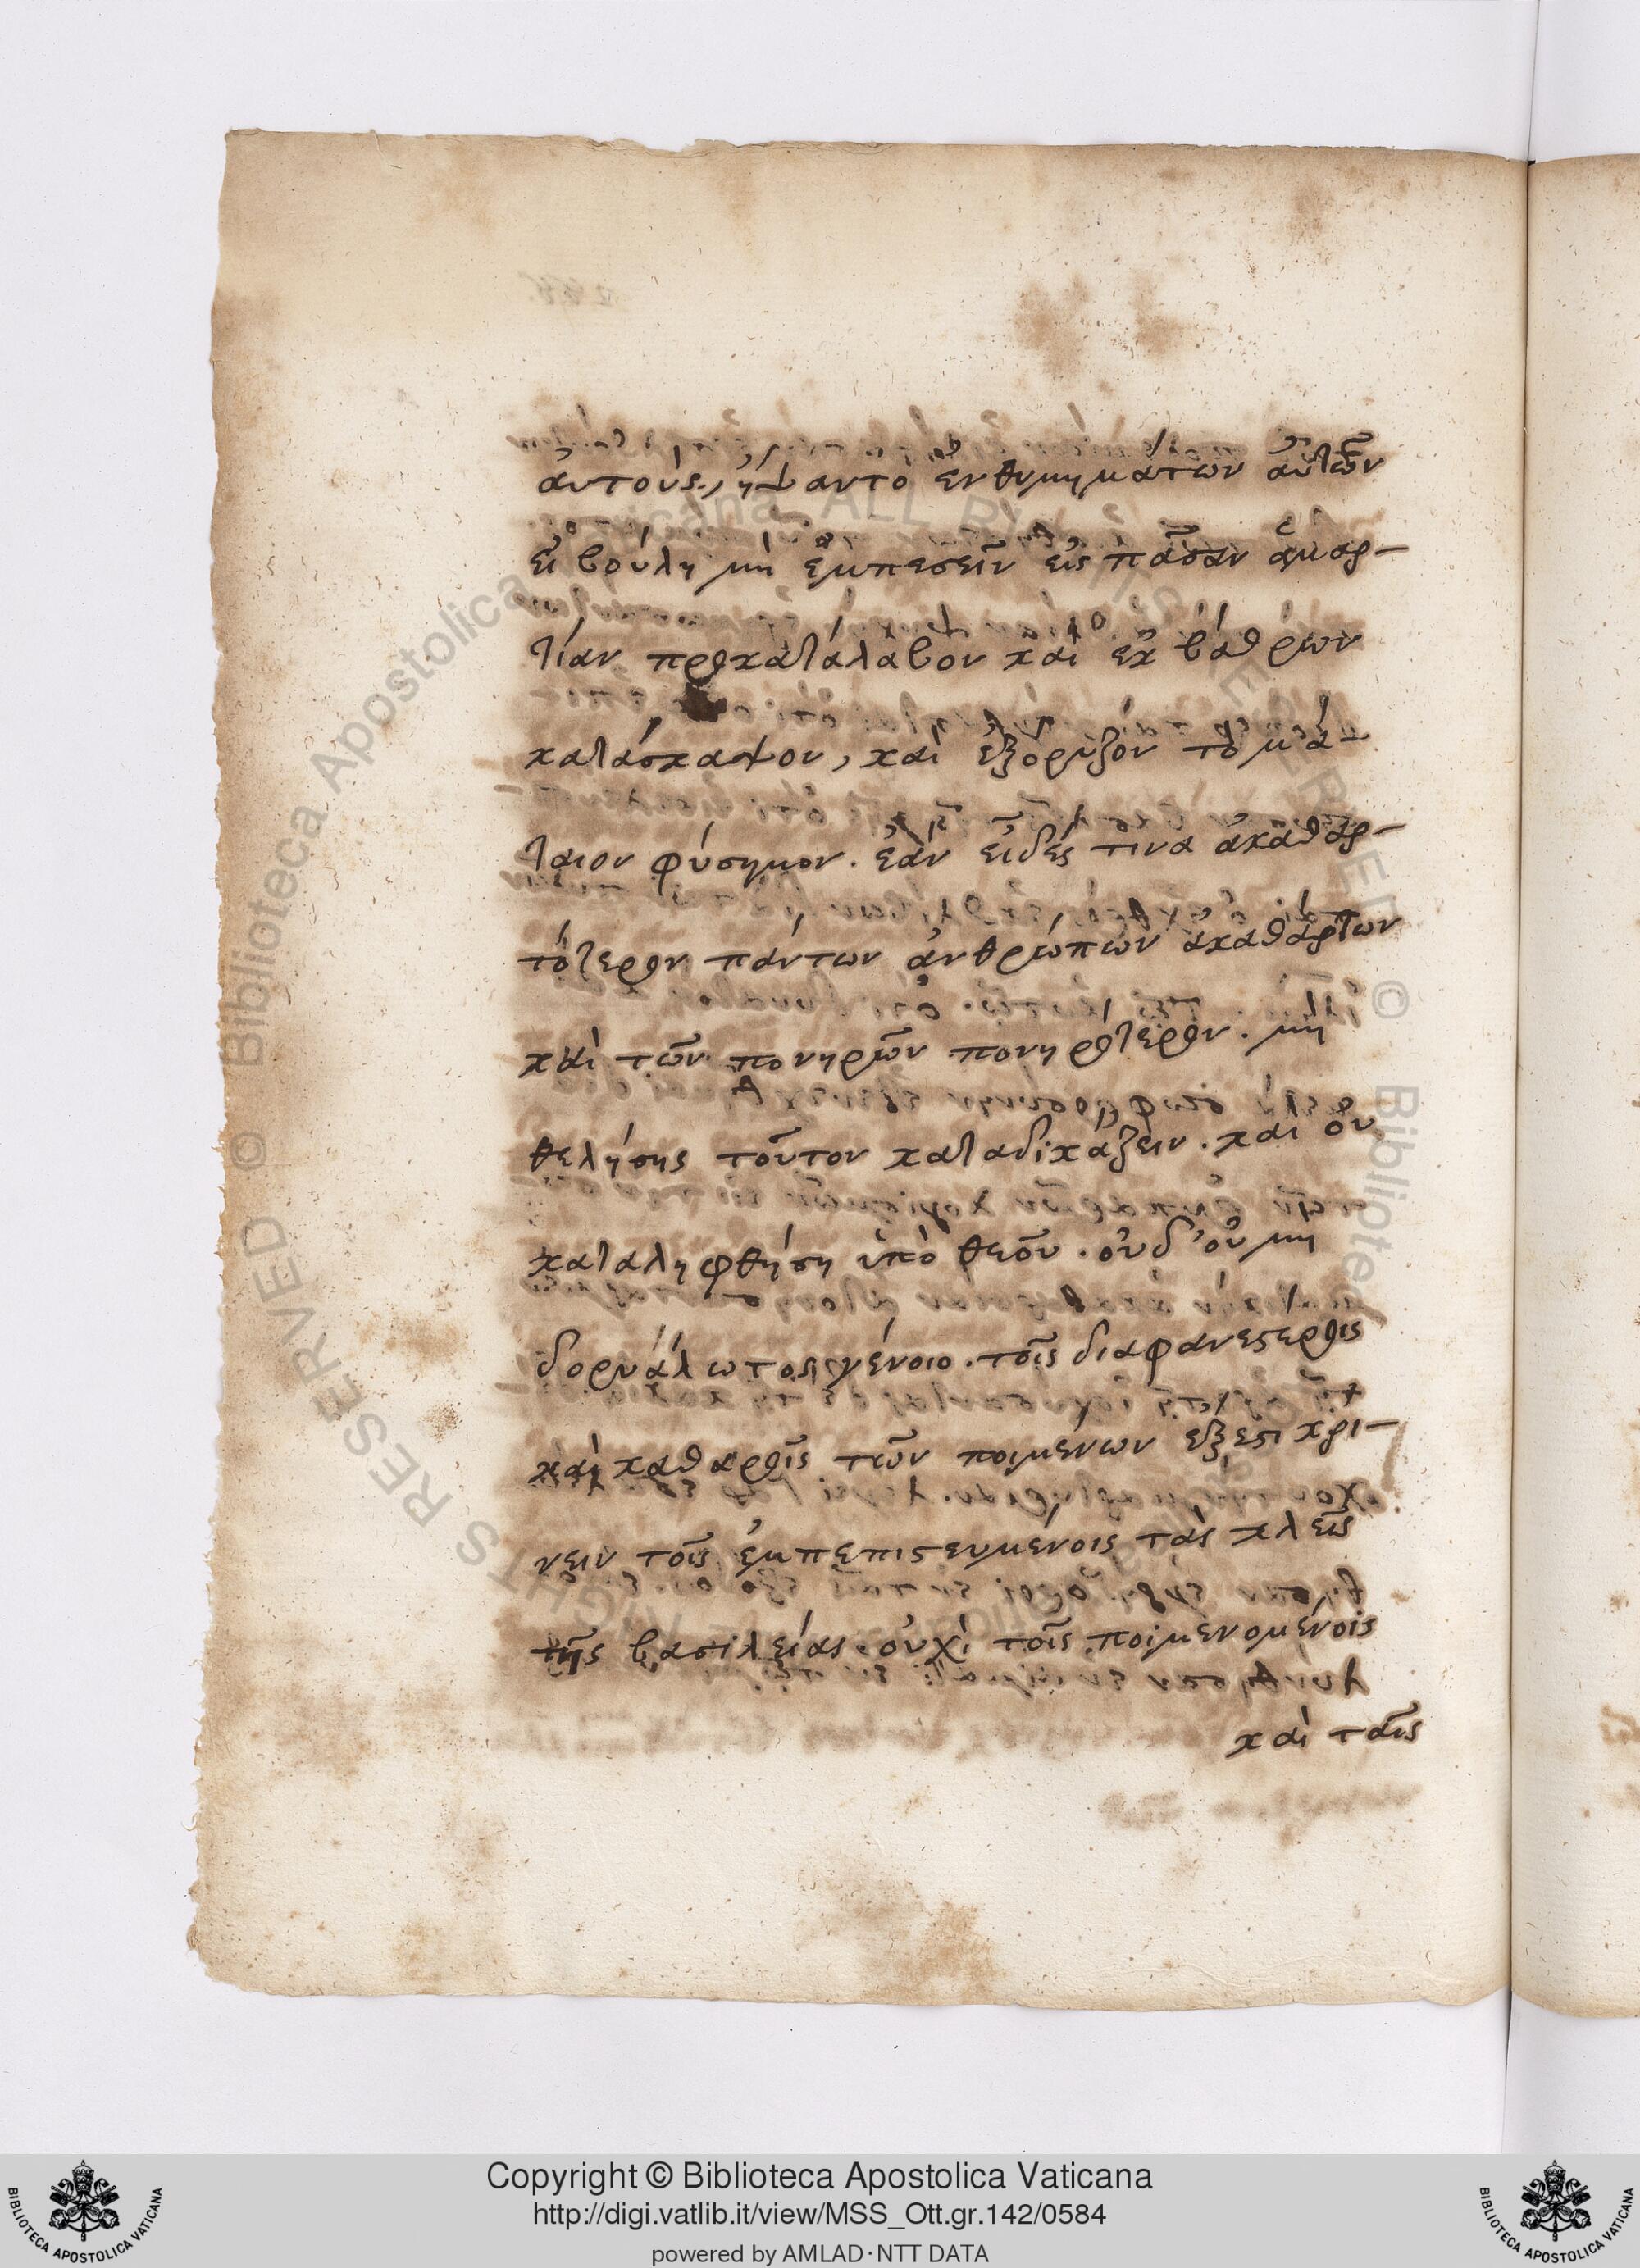 ἀυτοὺς, ἥψαντο ἐνθυμημάτων ἀυτῶν
εἰ βόυλη μὴ ἐμπεσεῖν εἰς πᾶσαν ἁμαρ-
τίαν προκατάλαβον καὶ ἐκ βάθρων
κατάσκαψον, καὶ ἐξόρυξον τὸ μά-
ταιον φύσημον. ἐὰν εἶδές τινα ἀκαθαρ-
τότερον πάντων ἀνθρώπων ἀκαθάρτων
καὶ τῶν πονηρῶν πονηρότερον. μὴ
θελήσης τοῦτον καταδικάζειν. καὶ οὐ
καταληφθήση ὑπὸ θεοῦ. οὐδ' οὐ μὴ
δορυάλωτος γένοιο. τοῖς διαφανεστέροις
καὶ καθαροῖς τῶν ποιμένων ἔξεστι κρί-
νειν τοῖς ἐμπεπιστευμένοις τὰς κλεῖς
τῆς βασιλείας. οὐχὶ τοῖς ποιμενομένοις
καὶ τᾶις
Copyright © Biblioteca Apostolica Vaticana
http://digi.vatlib.it/view/MSS_Ott.gr.142/0584
powered by AMLAD·NTT DATA
BIBLIOTECA APOSTOLICA VATICANA
BIBLIOTECA APOSTOLICA VATICANA